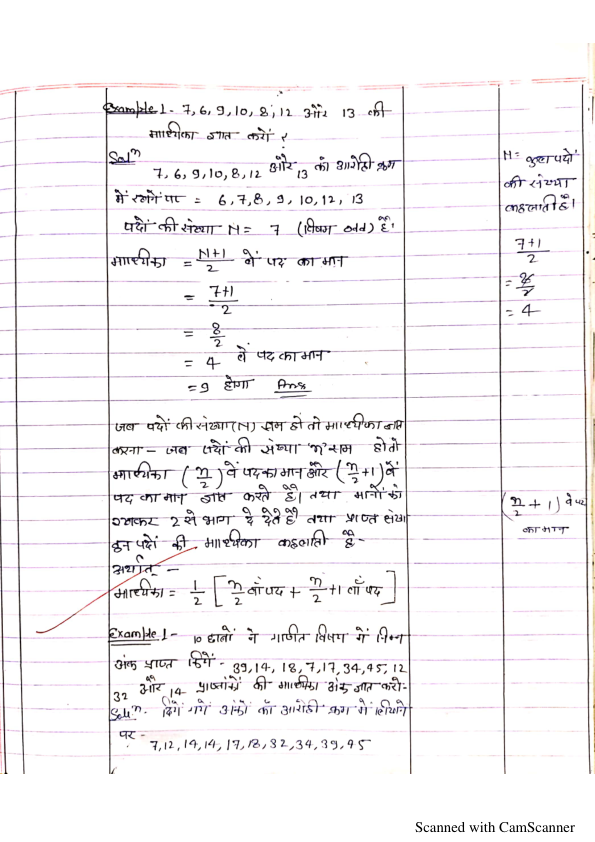 Example 1 - 7, 6, 9, 10, 8, 12 और 13 की
माध्यिका ज्ञात करो ?
Solⁿ
7, 6, 9, 10, 8, 12 और 13 को आरोही क्रम
में रखने पर = 6, 7, 8, 9, 10, 12, 13
पदों की संख्या N = 7 (विषम पद) है।
माध्यिका = N+1/2 वें पद का मान
= 7+1/2
= 8/2
= 4 वें पद का मान
= 9 होगा Ans
N = कुल पदों
की संख्या
कहलाती है।
7+1/2
= 8/2
= 4
जब पदों की संख्या (N) सम हो तो माध्यिका ज्ञात
करना - जब पदों की संख्या 'n' सम हो तो
माध्यिका (n/2) वें पद का मान और (n/2 + 1) वें
पद का मान ज्ञात करते हैं। तथा मानों को
2 से भाग दे देते हैं तथा प्राप्त संख्या
इन पदों की माध्यिका कहलाती है -
अर्थात् -
माध्यिका = 1/2 [n/2 वाँ पद + n/2 + 1 वाँ पद]
(n/2 + 1) वे पद
का मान
Example 1 - 10 छात्रों ने गणित विषय में निम्न
अंक प्राप्त किये - 39, 14, 18, 7, 17, 34, 45, 12
32 और 14 प्राप्तांकों की माध्यिका अंक ज्ञात करो-
Solⁿ. दिये गये अंकों को आरोही क्रम में लिखने
पर -
7, 12, 14, 14, 17, 18, 32, 34, 39, 45
Scanned with CamScanner